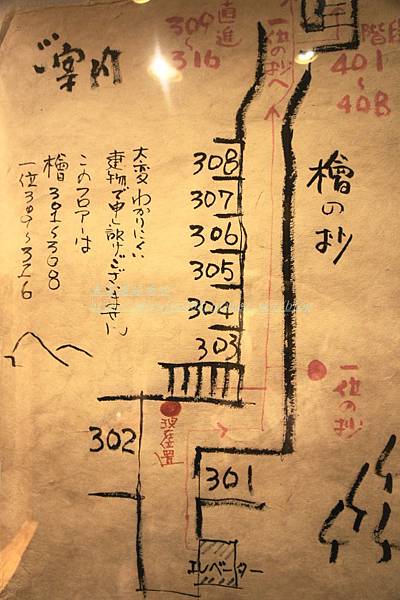 ご案内
大変わかりにくい
建物で申し訳ございません
このフロアーは
檜 301〜308
一位 309〜316
直進
309〜316
一位の抄へ
階段
401〜408
檜の抄
308
307
306
305
304
303
一位の抄
302
現在置
301
エレベーター